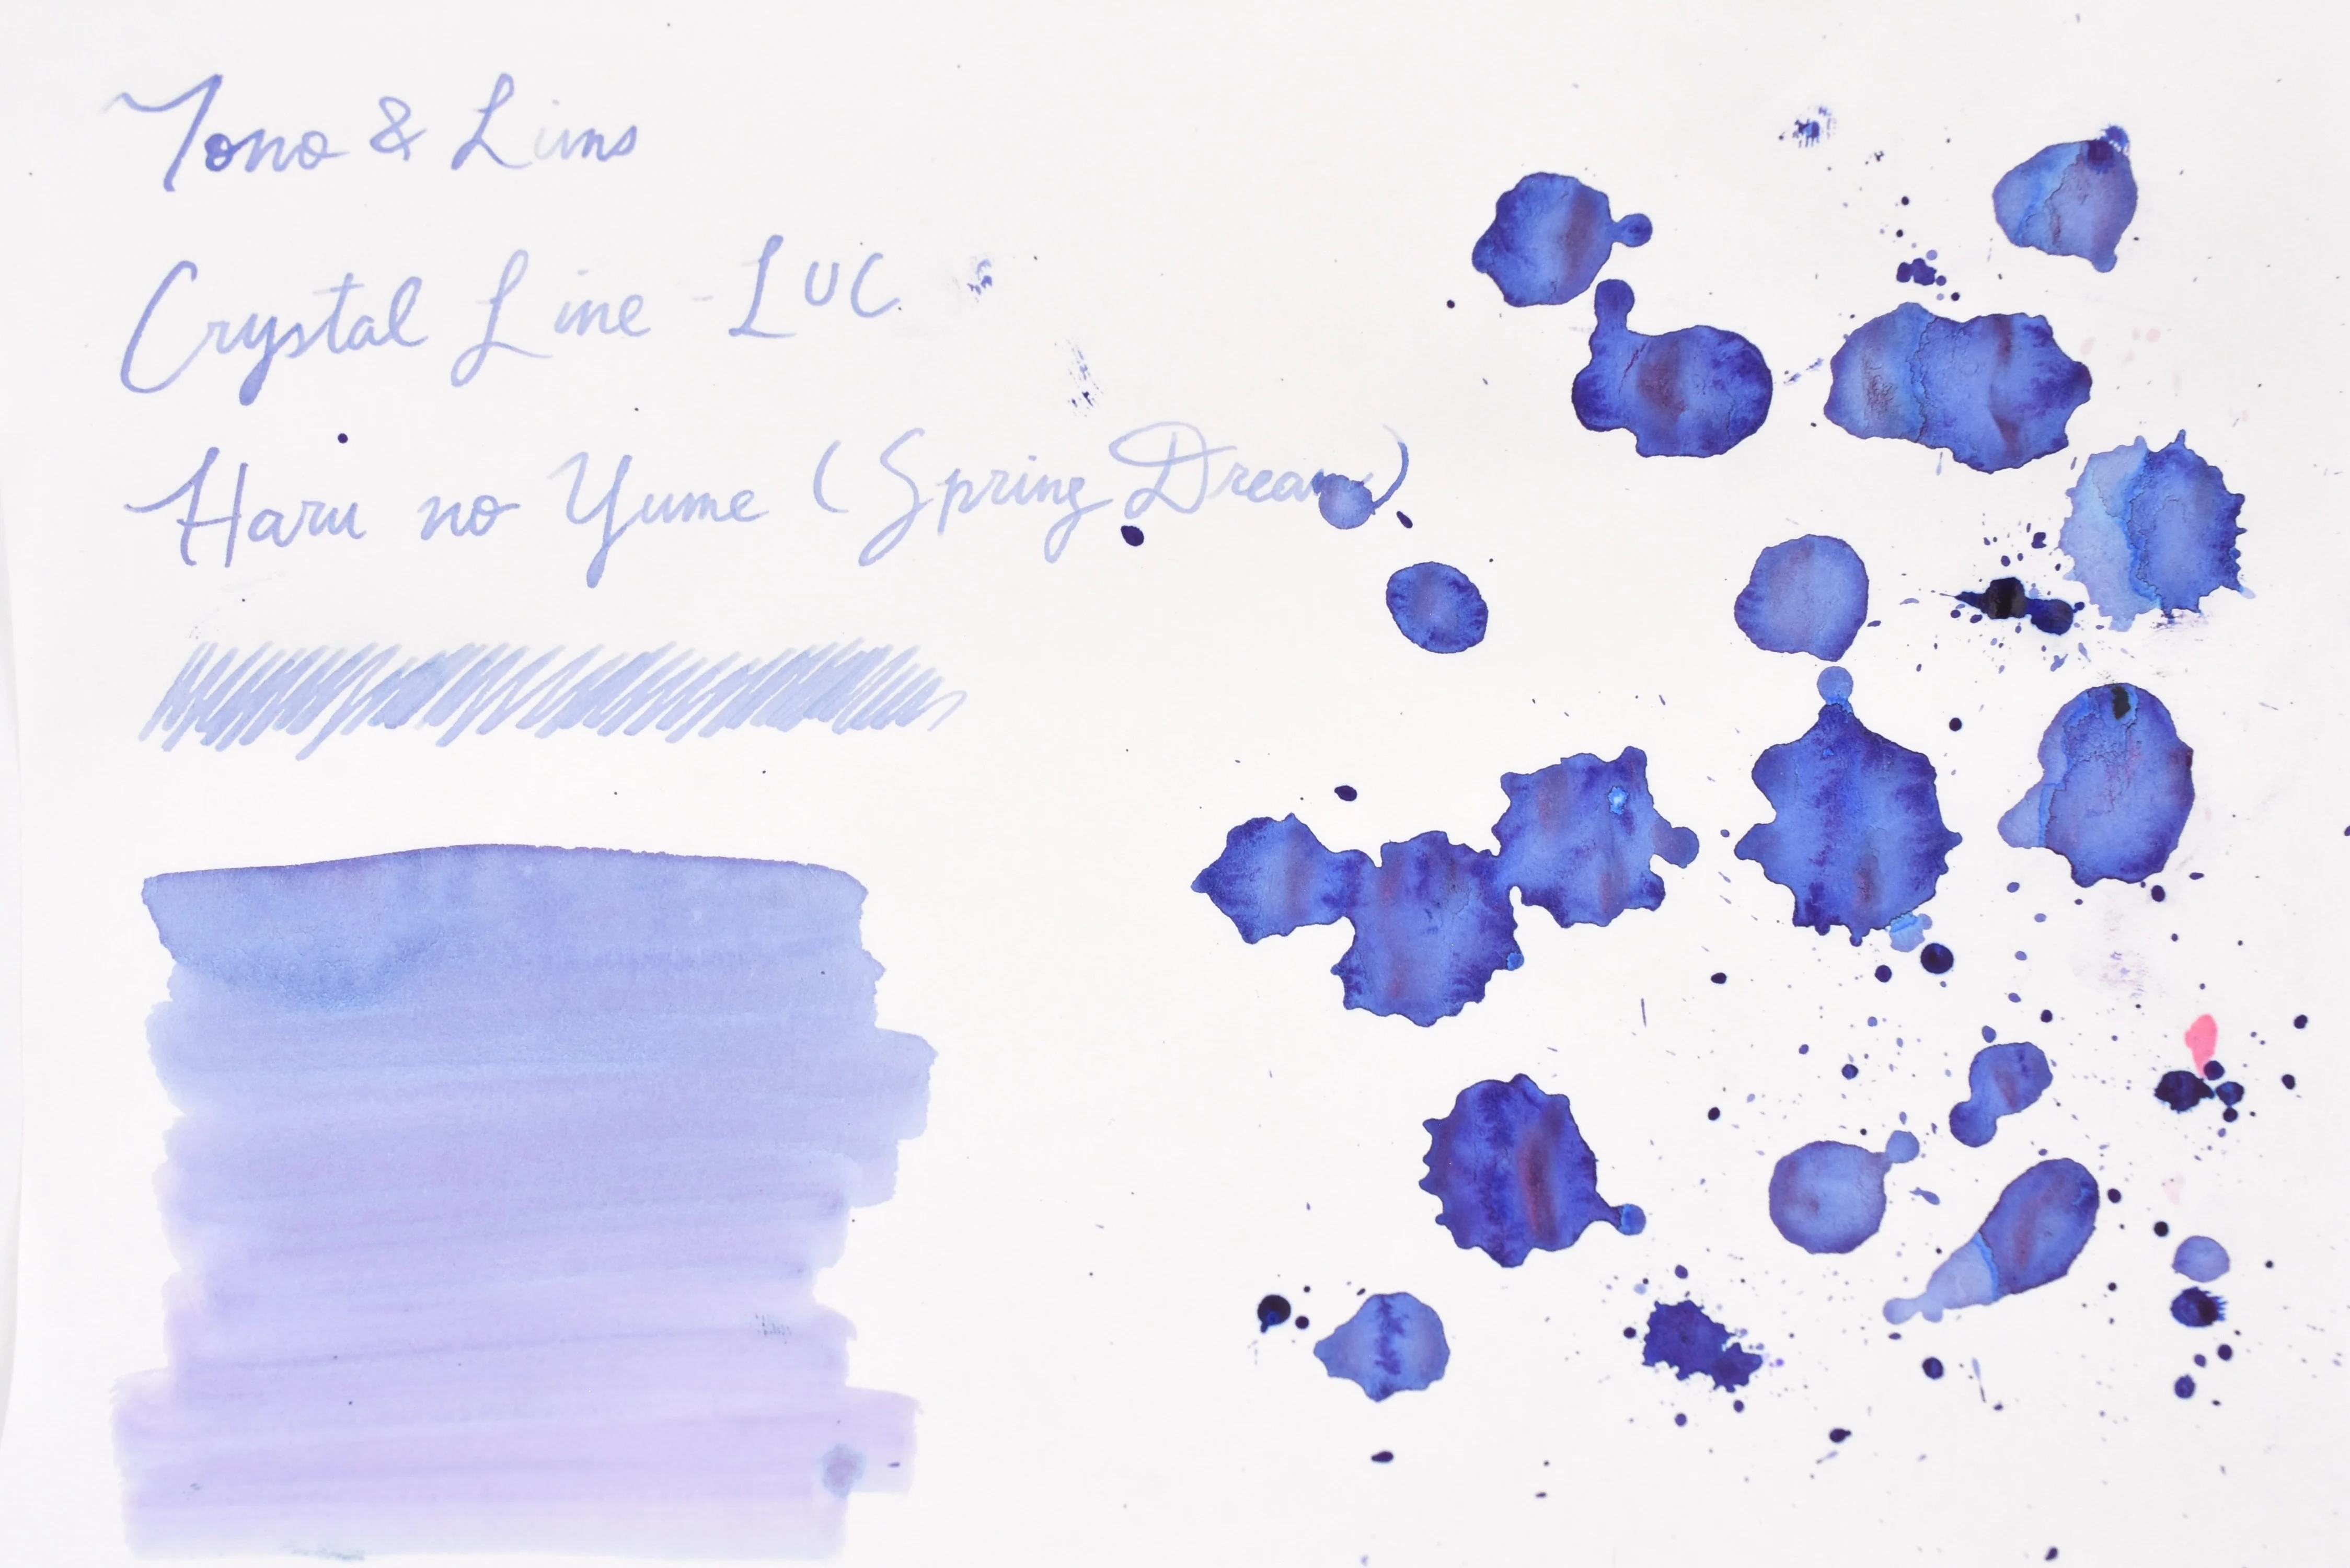 Tono & Lims
Crystal Line - LUC
Haru no Yume (Spring Dream)